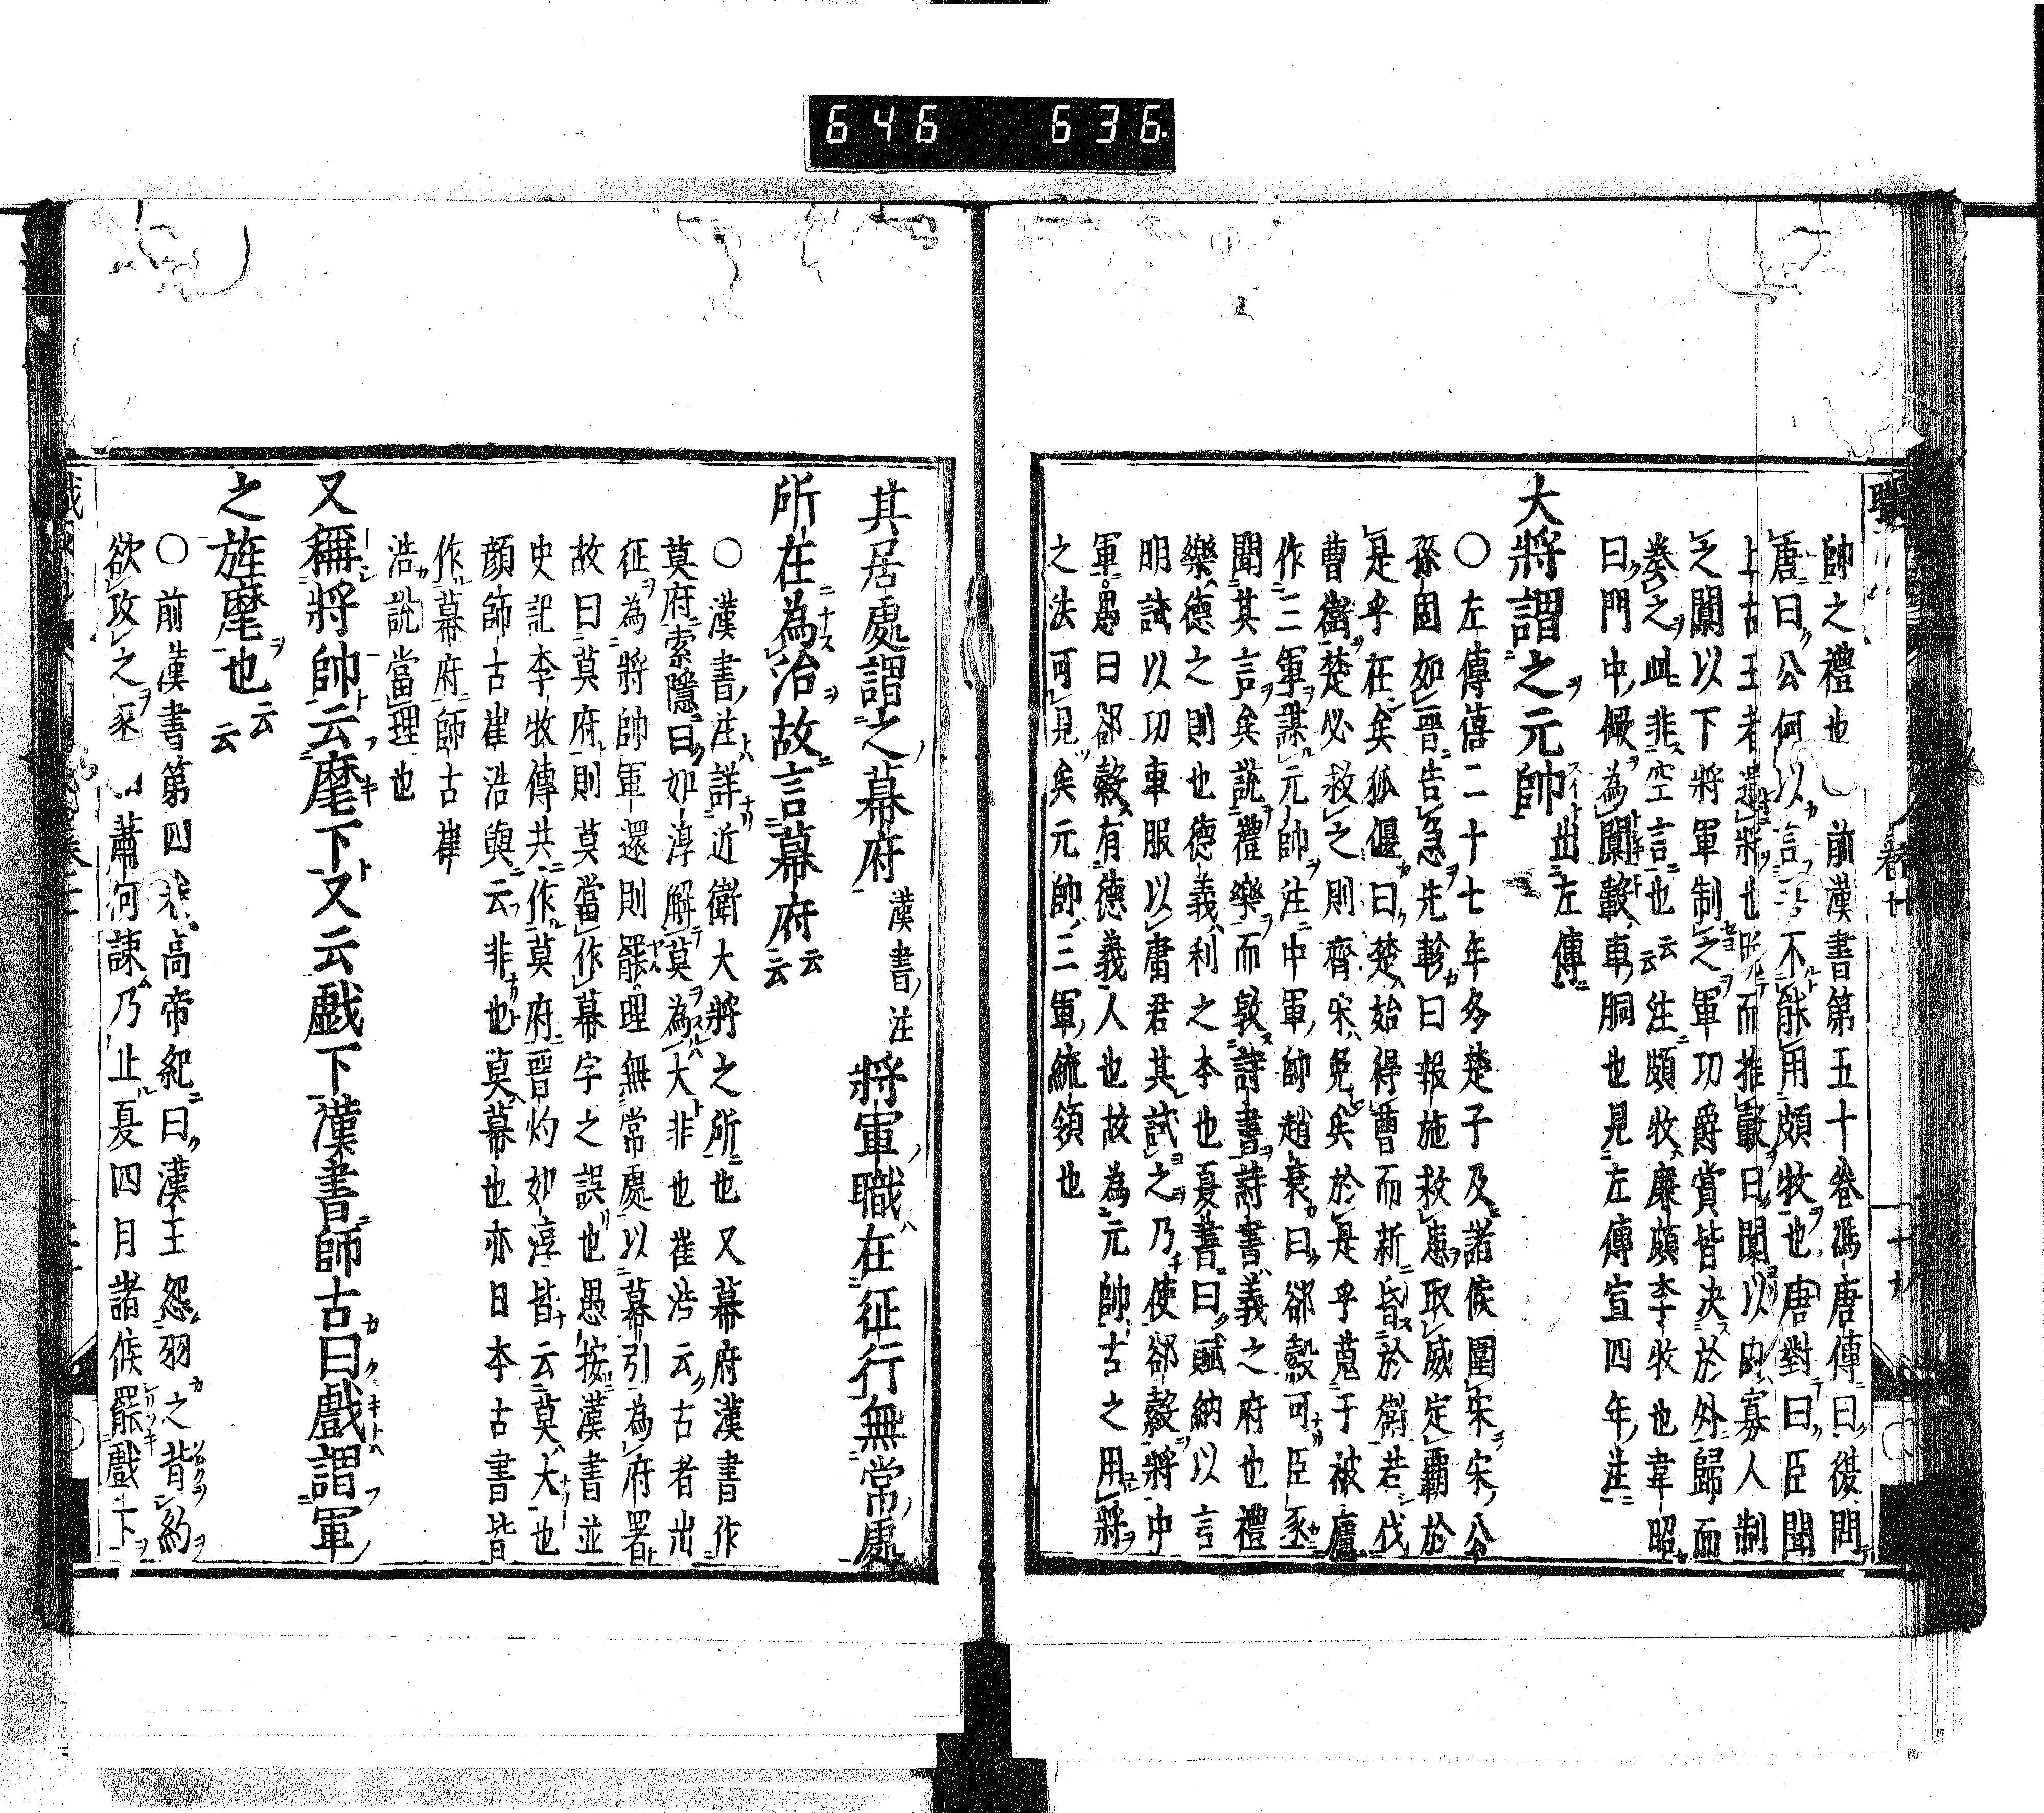 646 636
帥之禮也 前漢書第五十卷馮唐傳曰後問
唐曰公何以言不能用頗牧也唐對曰臣聞
上古王者遣將也而推轂曰闑以内寡人制
之闑以下將軍制之軍功爵賞皆决於外歸而
奏之此非空言也云云注頗牧廉頗李牧也韋昭
曰門中橛為闑轂車胴也見左傳宣四年注
大將謂之元帥出左傳
〇左傳僖二十七年冬楚子及諸侯圍宋宋公
孫固如晋告急先軫曰報施救患取威定覇於
是乎在矣狐偃曰楚始得曹而新昏於衛若伐
曹衛楚必救之則齊宋免矣於是乎蒐于被廬
作三軍謀元帥注中軍帥趙衰曰郤縠可臣亟
聞其言矣說禮樂而敦詩書詩書義之府也禮
樂德之則也德義利之本也夏書曰賦納以言
明試以功車服以庸君其試之乃使郤縠將中
軍愚曰郤縠有德義人也故為元帥古之用將
之法可見矣元帥三軍統領也
其居處謂之幕府漢書注將軍職在征行無常處
所在為治故言幕府云云
〇漢書注詳近衛大將之所也又幕府漢書作
莫府索隱曰如淳解莫為大非也崔浩云古者出
征為將帥軍還則罷理無常處以幕引為府署
故曰莫府則莫當作幕字之誤也愚按漢書並
史記李牧傳共作莫府晋灼如淳皆云莫大也
顔師古崔浩與云非也莫幕也亦曰本古書皆
作幕府師古崔
浩說當理也
又稱將帥云麾下又云戲下漢書師古曰戲謂軍
之旌麾也云云
〇前漢書第四高帝紀曰漢王怨羽之背約
欲攻之蕭何諌乃止夏四月諸侯罷戲下